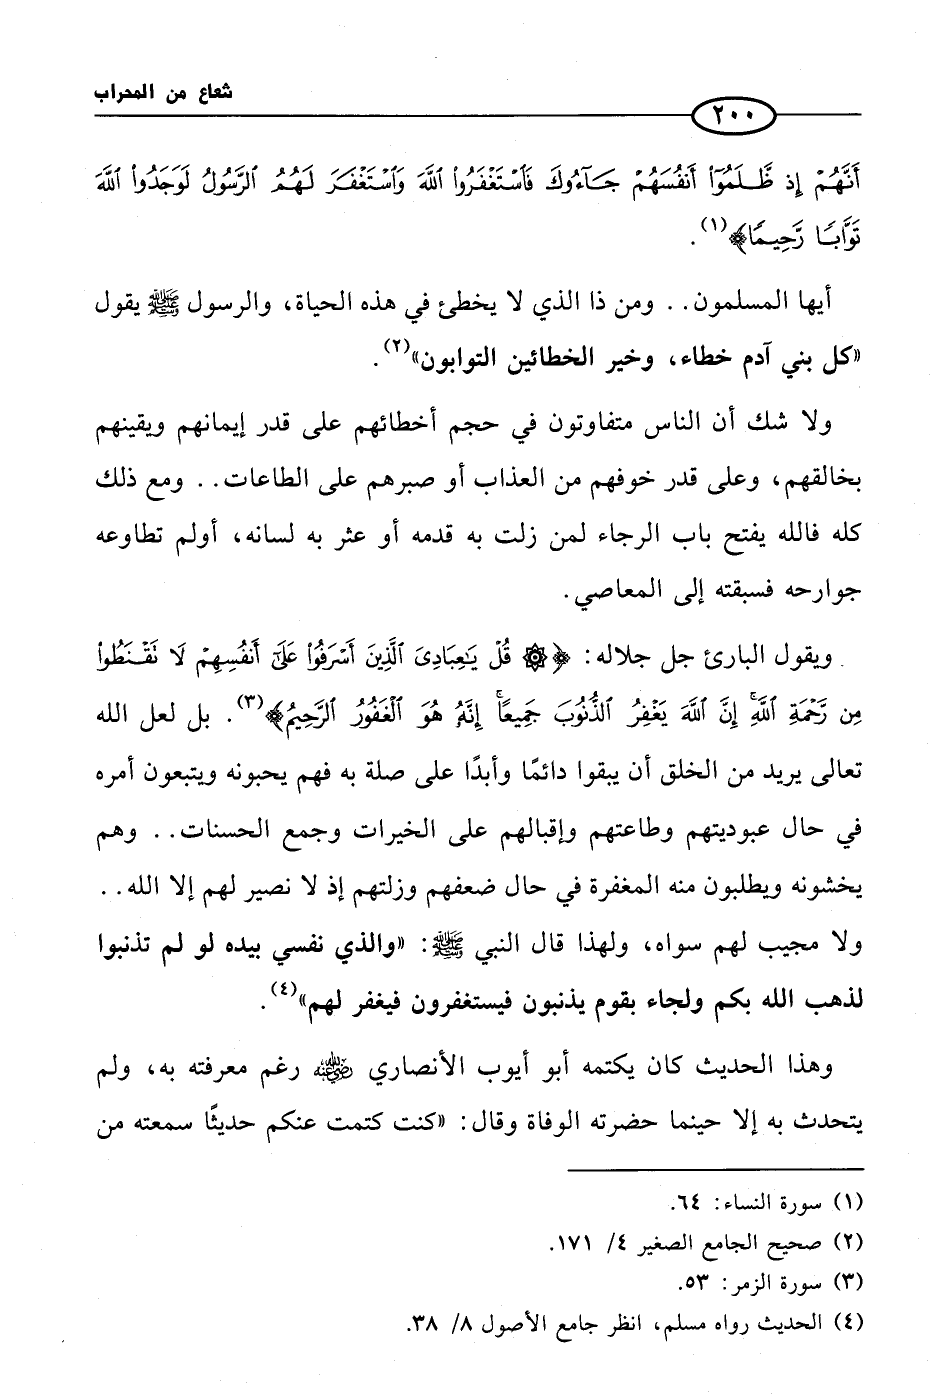 شعاع من المحراب
٢٠٠
أَنَّهُمْ إِذ ظَّلَمُوٓا۟ أَنفُسَهُمْ جَآءُوكَ فَٱسْتَغْفَرُوا۟ ٱللَّهَ وَٱسْتَغْفَرَ لَهُمُ ٱلرَّسُولُ لَوَجَدُوا۟ ٱللَّهَ
تَوَّابًا رَّحِيمًا﴾(١).
أيها المسلمون.. ومن ذا الذي لا يخطئ في هذه الحياة، والرسول ﷺ يقول
«كل بني آدم خطاء، وخير الخطائين التوابون»(٢).
ولا شك أن الناس متفاوتون في حجم أخطائهم على قدر إيمانهم ويقينهم
بخالقهم، وعلى قدر خوفهم من العذاب أو صبرهم على الطاعات.. ومع ذلك
كله فالله يفتح باب الرجاء لمن زلت به قدمه أو عثر به لسانه، أولم تطاوعه
جوارحه فسبقته إلى المعاصي.
ويقول البارئ جل جلاله: ﴿۞ قُلْ يَٰعِبَادِىَ ٱلَّذِينَ أَسْرَفُوا۟ عَلَىٰٓ أَنفُسِهِمْ لَا تَقْنَطُوا۟
مِن رَّحْمَةِ ٱللَّهِ ۚ إِنَّ ٱللَّهَ يَغْفِرُ ٱلذُّنُوبَ جَمِيعًا ۚ إِنَّهُۥ هُوَ ٱلْغَفُورُ ٱلرَّحِيمُ﴾(٣). بل لعل الله
تعالى يريد من الخلق أن يبقوا دائمًا وأبدًا على صلة به فهم يحبونه ويتبعون أمره
في حال عبوديتهم وطاعتهم وإقبالهم على الخيرات وجمع الحسنات.. وهم
يخشونه ويطلبون منه المغفرة في حال ضعفهم وزلتهم إذ لا نصير لهم إلا الله..
ولا مجيب لهم سواه، ولهذا قال النبي ﷺ: «والذي نفسي بيده لو لم تذنبوا
لذهب الله بكم ولجاء بقوم يذنبون فيستغفرون فيغفر لهم»(٤).
وهذا الحديث كان يكتمه أبو أيوب الأنصاري رضي الله عنه رغم معرفته به، ولم
يتحدث به إلا حينما حضرته الوفاة وقال: «كنت كتمت عنكم حديثًا سمعته من
(١) سورة النساء: ٦٤.
(٢) صحيح الجامع الصغير ٤/ ١٧١.
(٣) سورة الزمر: ٥٣.
(٤) الحديث رواه مسلم، انظر جامع الأصول ٨/ ٣٨.